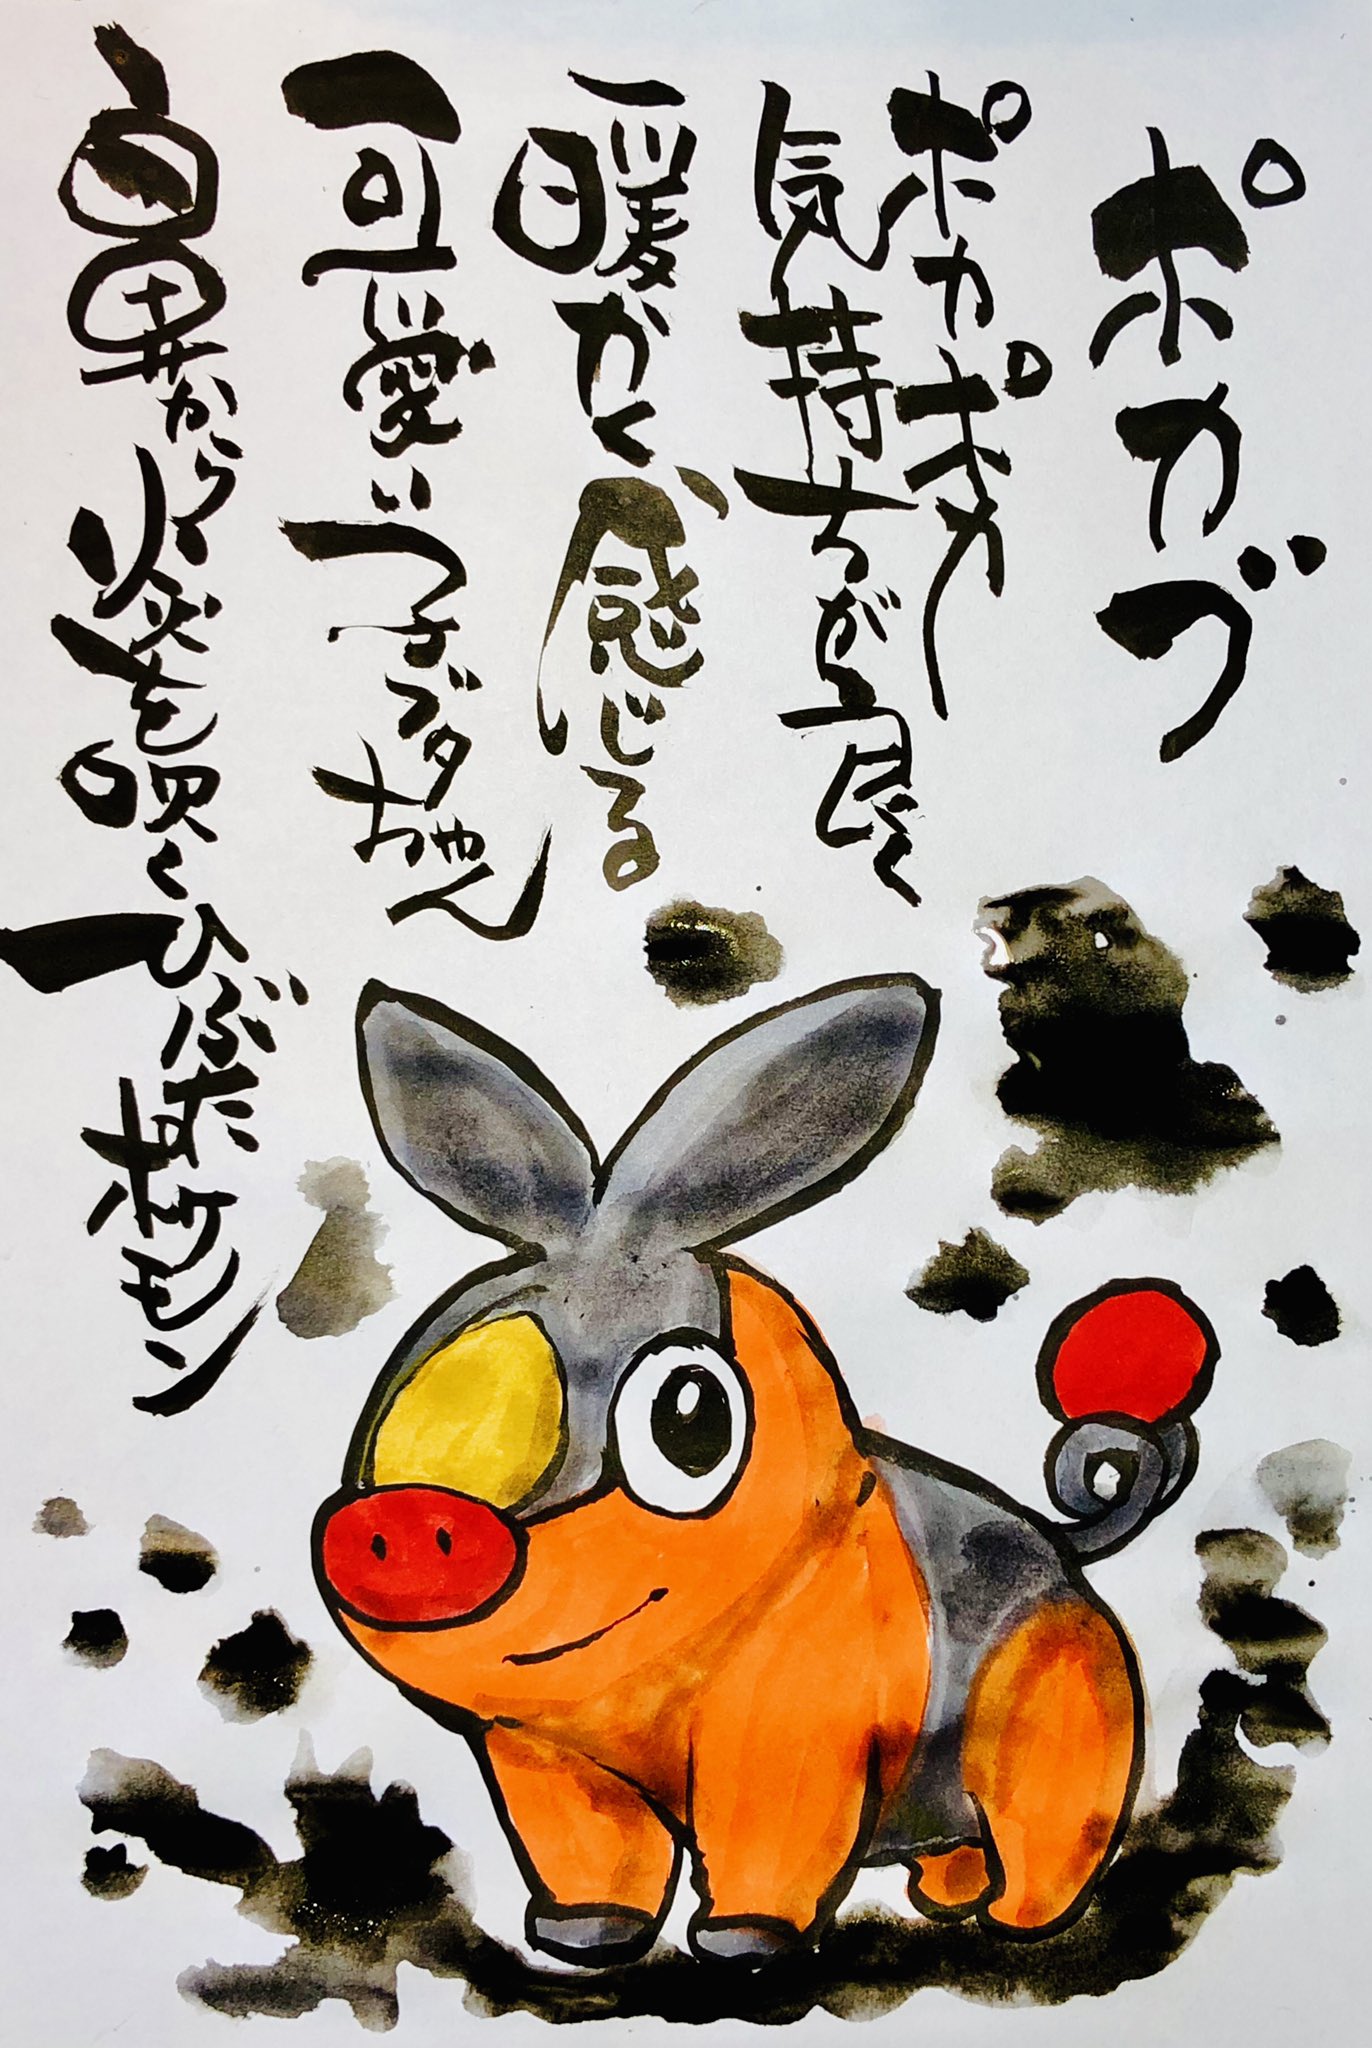 ポカブ
ポカポカ
気持ちが良く
暖かく感じる
可愛い子ブタちゃん
鼻から炎を吹くひぶたポケモン